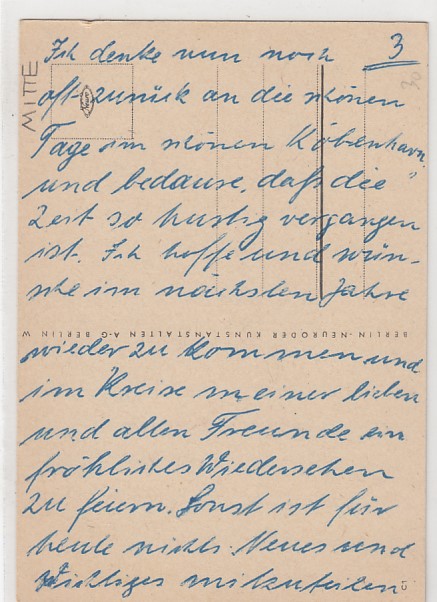 3
30
MITTE
Ich denke nun noch
oft zurück an die schönen
Tage im schönen Köbenhavn,
und bedaure, daß die
Zeit so hurtig vergangen
ist. Ich hoffe und wün-
sche im nächsten Jahre
BERLIN-NEURODER KUNSTANSTALTEN A-G BERLIN W
wieder zu kommen und
im Kreise meiner lieben
und allen Freunde ein
fröhliches Wiedersehen
zu feiern. Sonst ist für
heute nichts Neues und
Wichtiges mitzuteilen